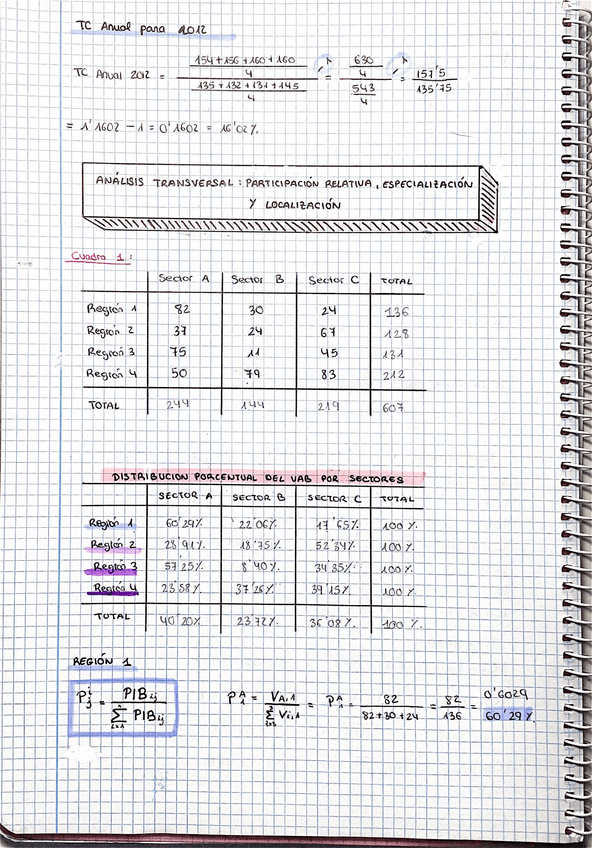 TC Anual para 2012
TC Anual 2012 = (154 + 156 + 160 + 160 / 4) / (135 + 132 + 131 + 145 / 4) = (630 / 4) / (543 / 4) = 157'5 / 135'75
= 1'1602 - 1 = 0'1602 = 16'02%.
ANÁLISIS TRANSVERSAL: PARTICIPACIÓN RELATIVA, ESPECIALIZACIÓN
Y LOCALIZACIÓN
Cuadro 1:
Sector A Sector B Sector C TOTAL
Región 1 82 30 24 136
Región 2 37 24 67 128
Región 3 75 11 45 131
Región 4 50 79 83 212
TOTAL 244 144 219 607
DISTRIBUCION PORCENTUAL DEL VAB POR SECTORES
SECTOR A SECTOR B SECTOR C TOTAL
Región 1 60'29%. 22'06%. 17'65%. 100%.
Región 2 28'91%. 18'75%. 52'34%. 100%.
Región 3 57'25%. 8'40%. 34'35%. 100%.
Región 4 23'58%. 37'26%. 39'15%. 100%.
TOTAL 40'20%. 23'72%. 36'08%. 100%.
REGIÓN 1
P^i_j = PIB_ij / Σ PIB_ij P^A_1 = V_A,1 / Σ V_i,1 = P^A_1 = 82 / 82+30+24 = 82 / 136 = 0'6029
60'29%.